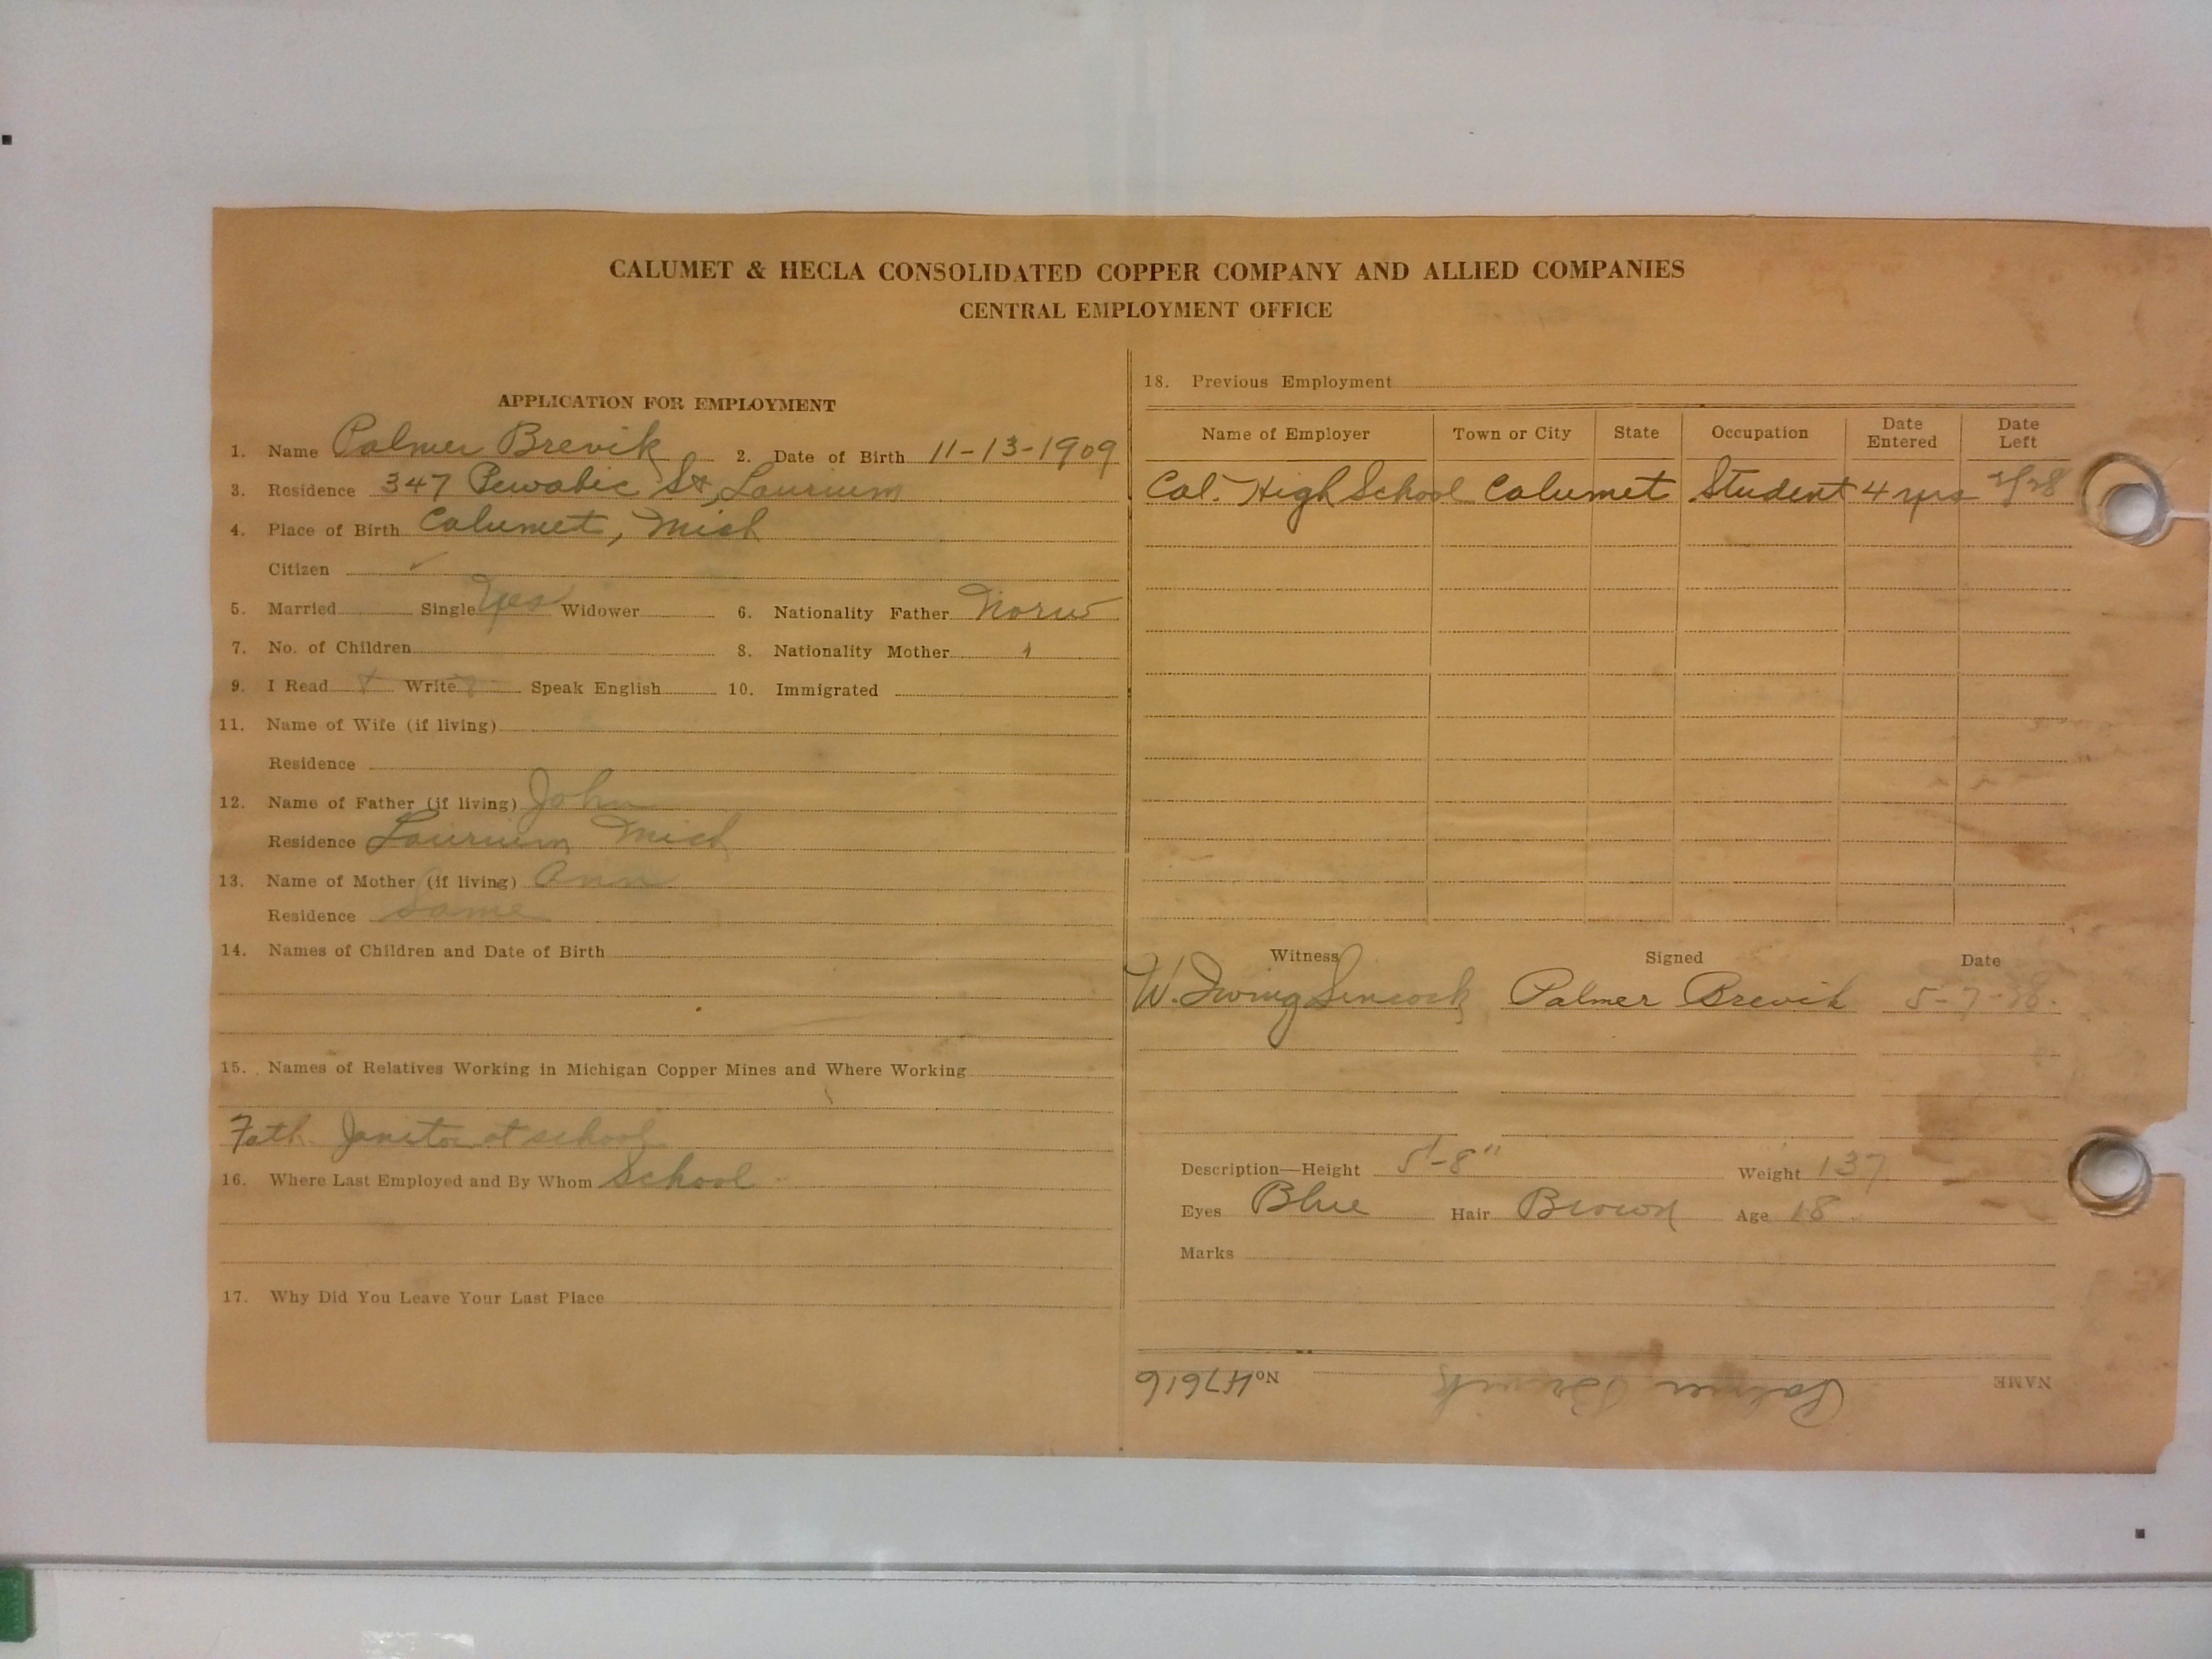 CALUMET & HECLA CONSOLIDATED COPPER COMPANY AND ALLIED COMPANIES
CENTRAL EMPLOYMENT OFFICE
APPLICATION FOR EMPLOYMENT
1. Name Palmer Brevik 2. Date of Birth 11-13-1909
3. Residence 347 Pewabic St, Laurium
4. Place of Birth Calumet, Mich
Citizen ✓
5. Married Single Yes Widower 6. Nationality Father Norw
7. No. of Children 8. Nationality Mother
9. I Read Write Speak English 10. Immigrated
11. Name of Wife (if living)
Residence
12. Name of Father (if living) John
Residence Laurium Mich
13. Name of Mother (if living) Ann
Residence Same
14. Names of Children and Date of Birth
15. Names of Relatives Working in Michigan Copper Mines and Where Working
Fath. Janitor at school
16. Where Last Employed and By Whom School
17. Why Did You Leave Your Last Place
18. Previous Employment
Name of Employer Town or City State Occupation Date Entered Date Left
Cal. High School Calumet Student 4 yrs
Witness Signed Date
W. Irving Sincock Palmer Brevik 5-7-28.
Description—Height 5'-8" Weight 137
Eyes Blue Hair Brown Age 18
Marks
NAME Palmer Brevik No. 47616